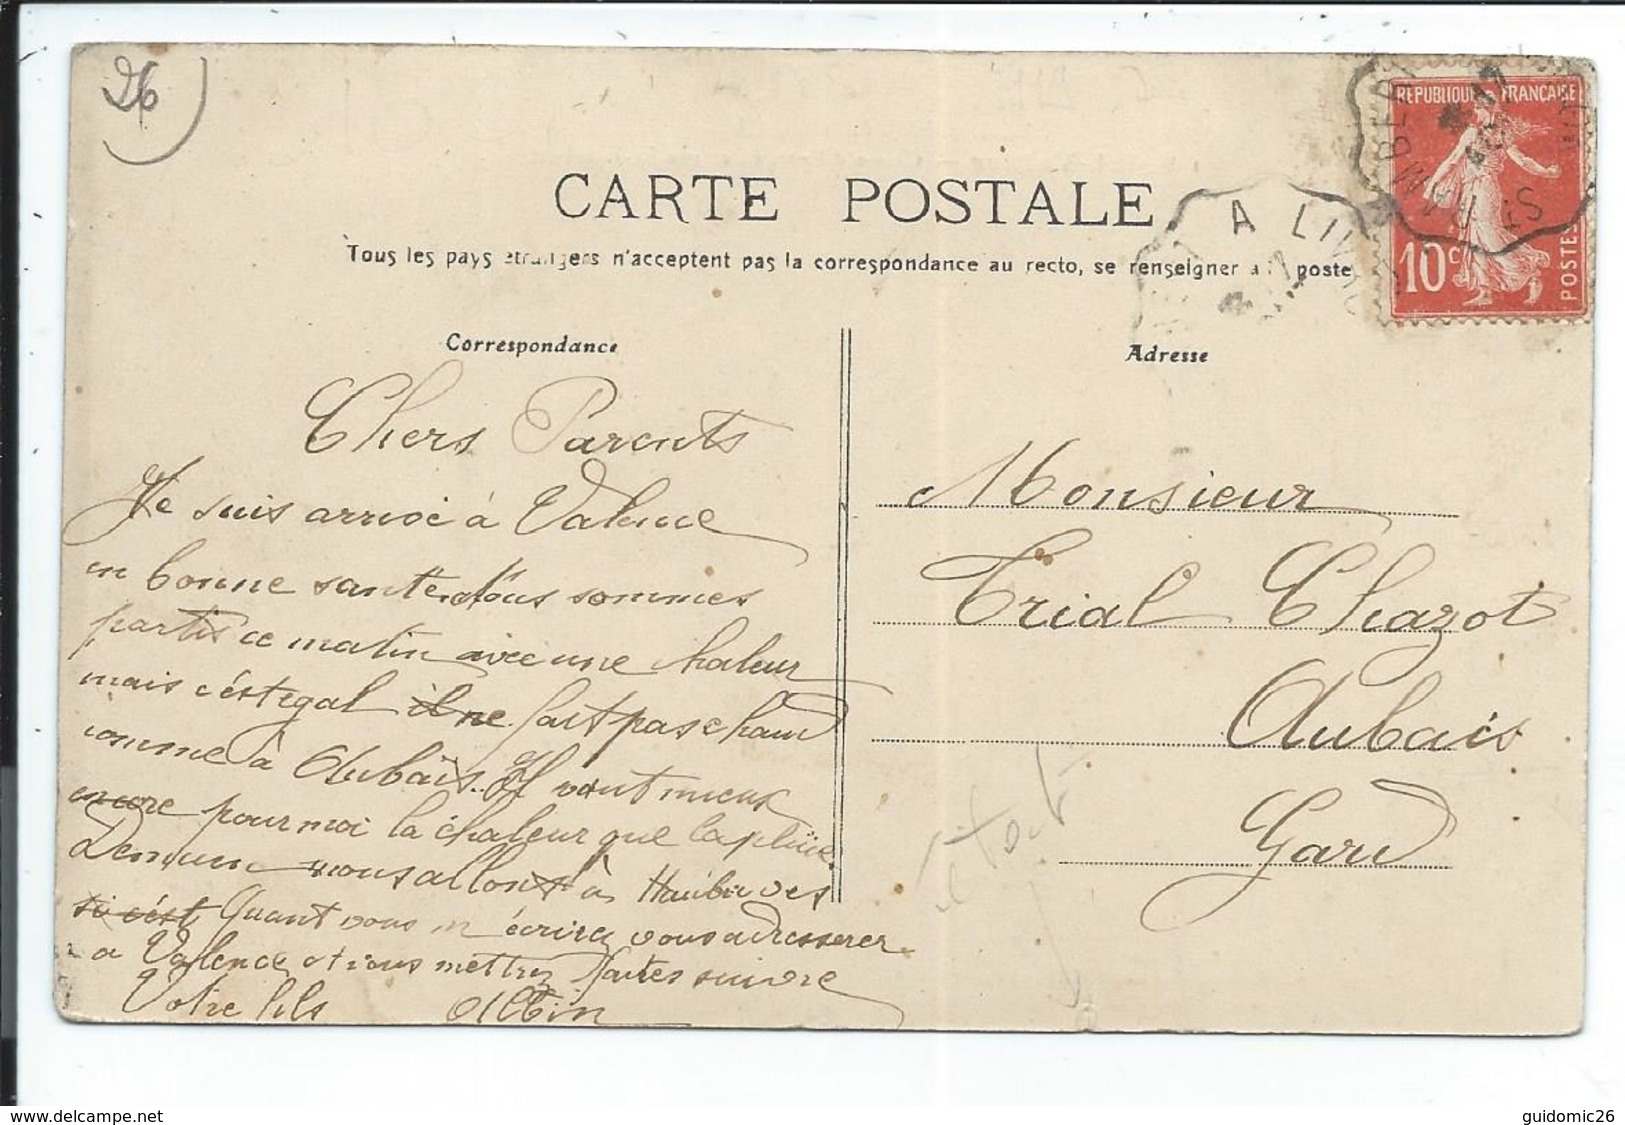 26
CARTE POSTALE
Tous les pays étrangers n'acceptent pas la correspondance au recto, se renseigner à la poste
REPUBLIQUE FRANÇAISE
10c
POSTES
ST RAMBERT
A LIV
Correspondance
Adresse
Chers Parents
Je suis arrivé à Valence
en bonne santé. Nous sommes
partis ce matin avec une chaleur
mais c'est egal il ne fait pas chaud
comme à Aubais. Il vaut mieux
encore pour moi la chaleur que la pluie
Demain nous allons à Hauterives
si c'est Quant vous m écrirez vous adresserer
a Valence et vous mettrez faites suivre
Votre fils Albin
Monsieur
Trial Chazot
Aubais
Gard
guidomic26
www.delcampe.net